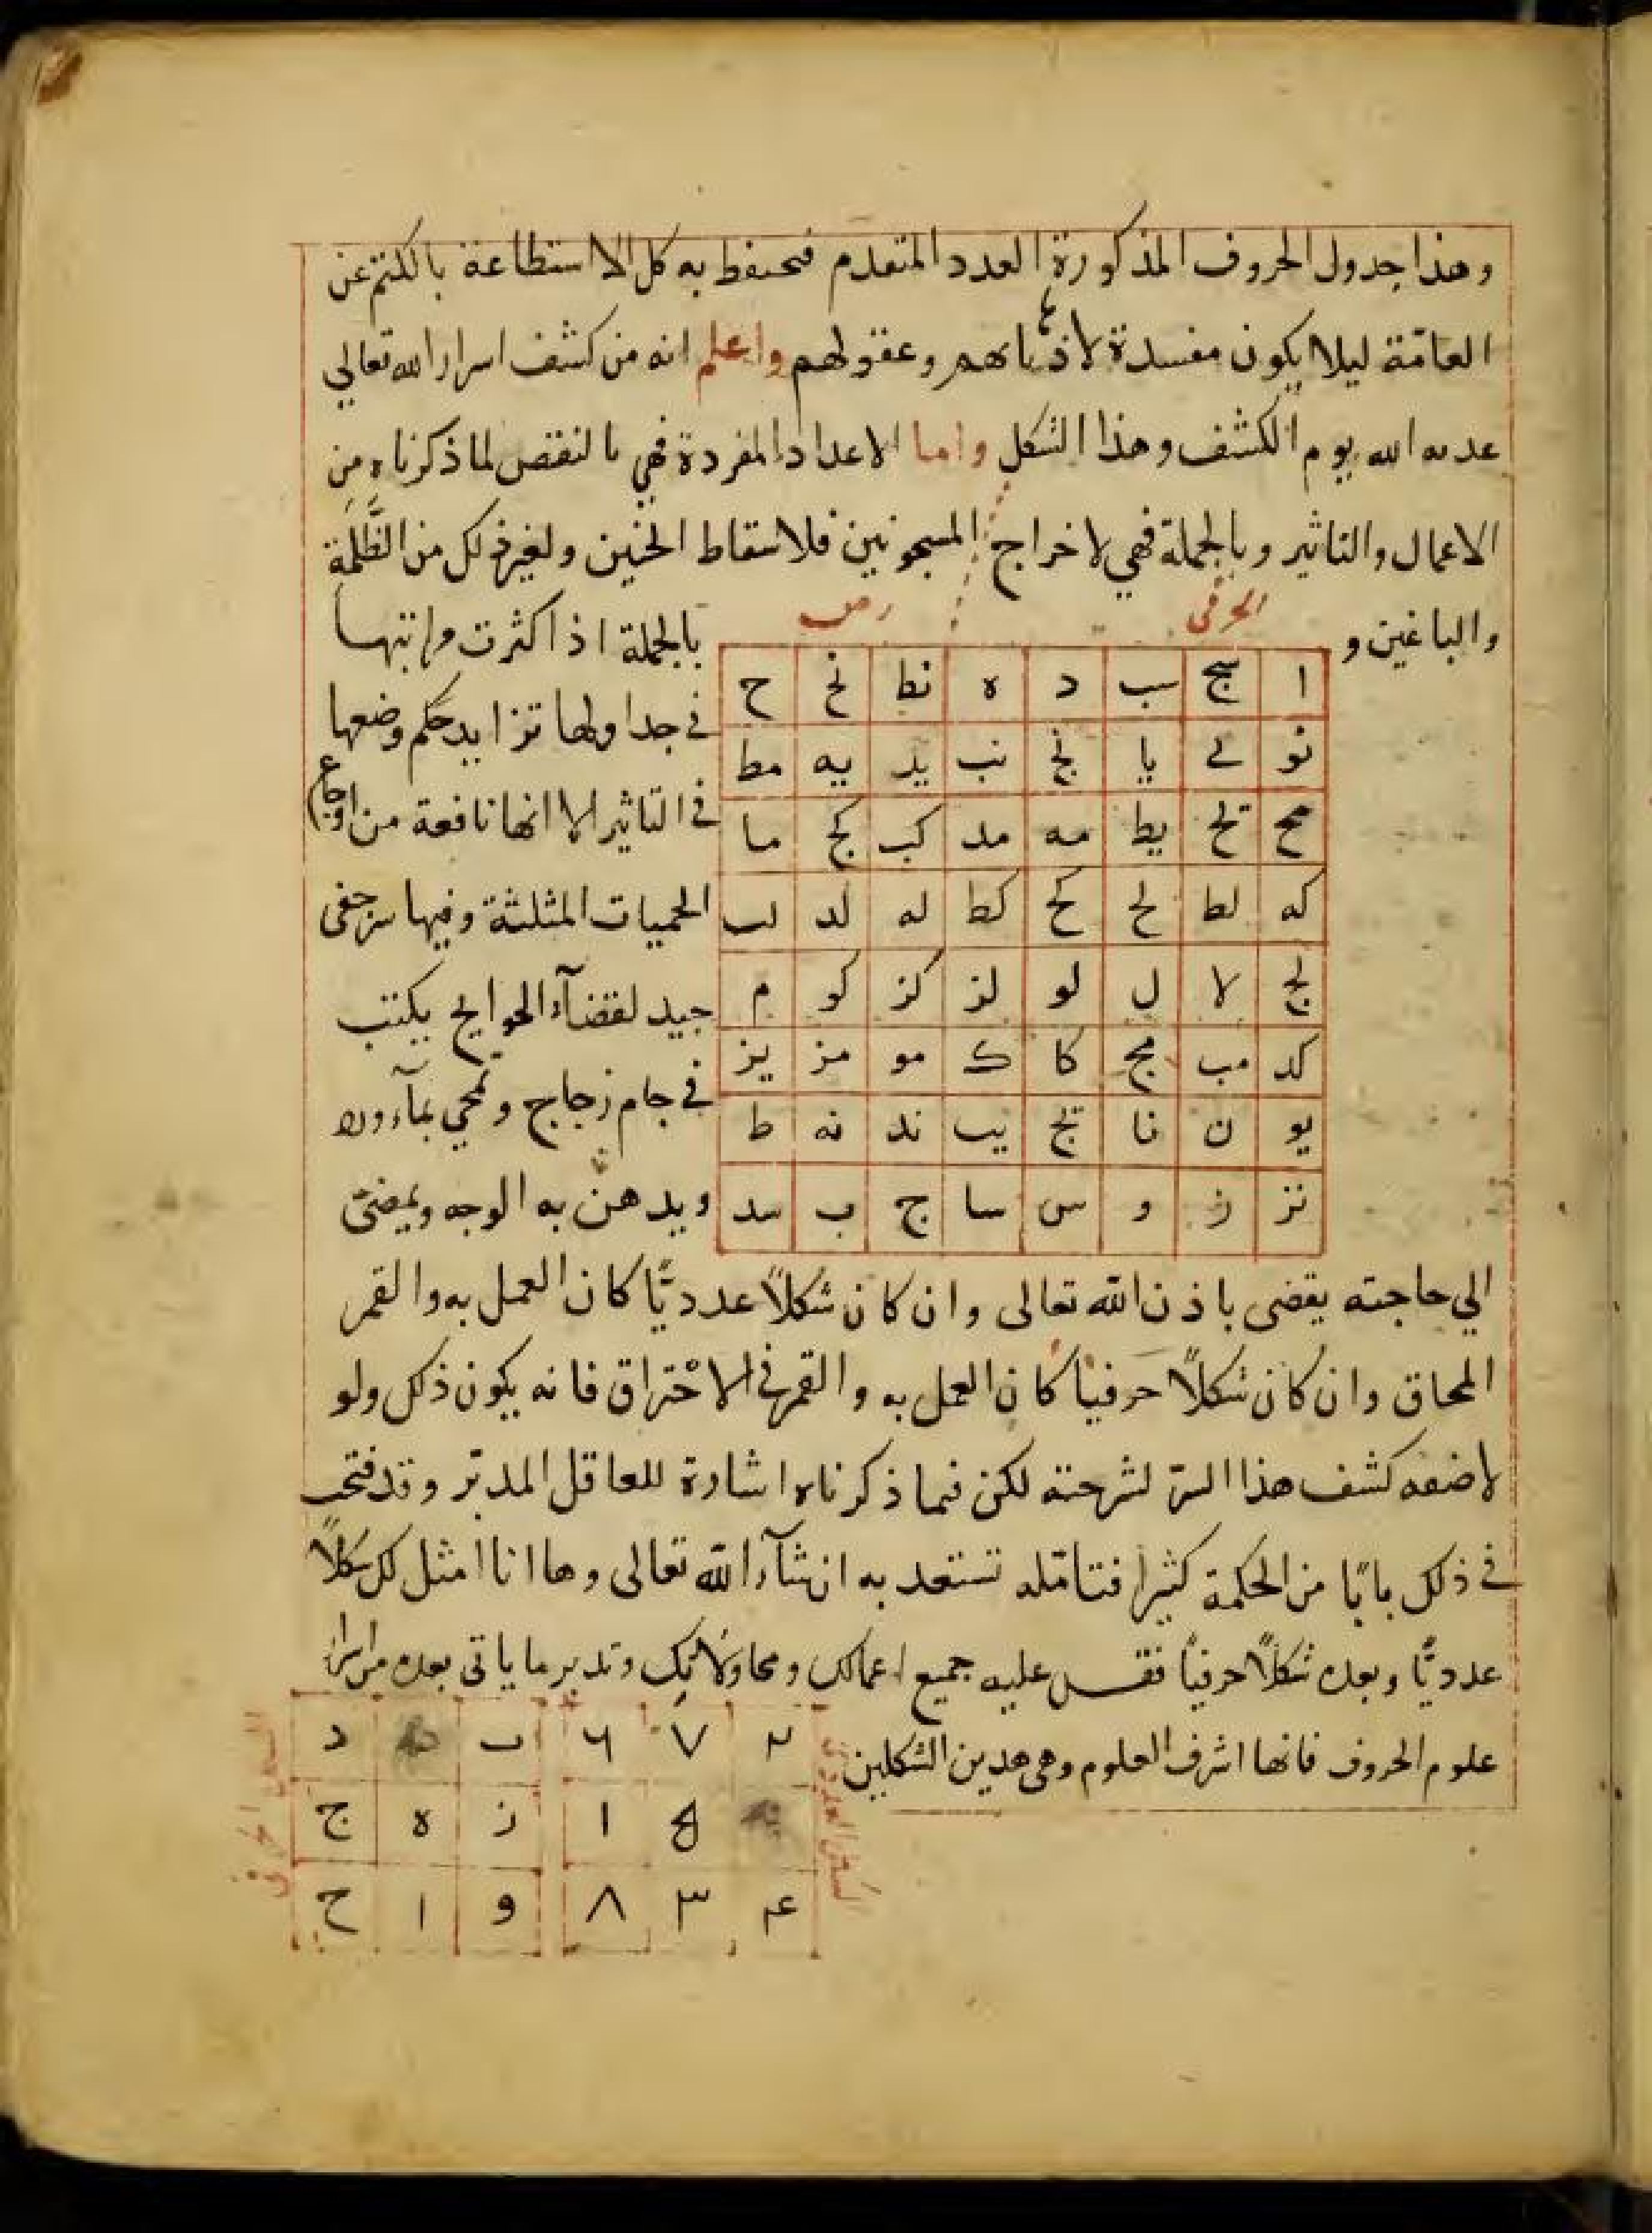 وهذا جدول الحروف المذكورة العدد المتقدم فتحفظ به كل الاستطاعة بالكتم عن
العامّة ليلا يكون مفسدة لاذهانهم وعقولهم واعلم انه من كشف اسرار الله تعالي
عدبه الله يوم الكشف وهذا الشكل واما الاعداد المفردة فهي بالنقص لما ذكرناه من
الاعمال والتاثير وبالجملة فهي لاخراج المسجونين فلاسقاط الجنين ولغير ذلك من الظَّلَمة
والباغين و
الحرفي
بالجملة اذا كثرت مراتبها
في جداولها تزايد حكم وضعها
في التاثير الا انها نافعة من اوجاع
الحميات المثلثة وفيها سر خفى
جيد لقضآء الحوايج يكتب
في جام زجاج وتمحي بمآء ورد
ويدهن به الوجه ويمضى
ا سج سب د ه نط نح ح
نو ي يا نج نب يد يه مط
مح يح يط مه مد كب كج ما
كه لط لح كح كط له لد لب
لج لا ل لو لز كز كو م
كد مب مج كا ك مو مز يز
يو ن نا يج يب ند نه ط
نز ز و س سا ج ب سد
الي حاجته يقضى باذن الله تعالى وان كان شكلًا عدديًّا كان العمل به والقمر
المحاق وان كان شكلًا حرفيا كان العمل به والقمر في الاحتراق فانه يكون ذلك ولو
لاضعه كشف هذا السرّ لشرحته لكن فيما ذكرناه اشارة للعاقل المدبّر وقد فتحت
في ذلك بابًا من الحكمة كثيرا فتامّله تستعد به ان شآء الله تعالى وها انا امثل لك شكلًا
عدديًّا وبعده شكلًا حرفيًا فقس عليه جميع اعمالك ومحاولاتك وتدبر ما ياتى بعده من اسرار
علوم الحروف فانها اشرف العلوم وهى هدين الشكلين
الشكل العددي
٢ ٧ ٦
٥ ١
٤ ٣ ٨
الشكل الحرفي
ب د
ز ه ج
و ا ح